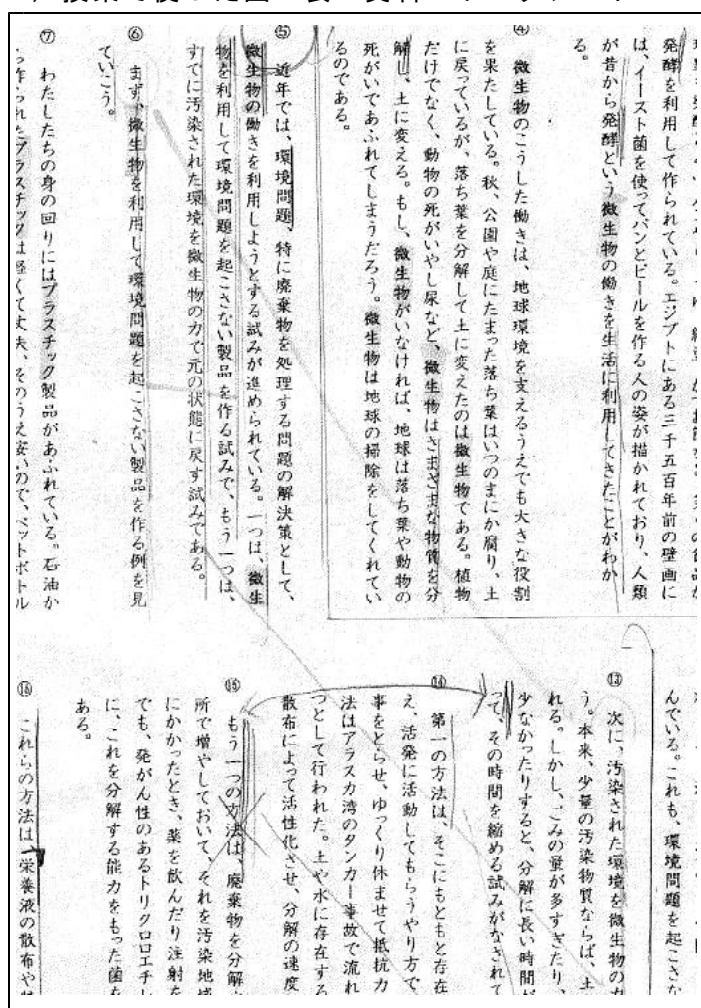 発酵を利用して作られている。エジプトにある三千五百年前の壁画に
は、イースト菌を使ってパンとビールを作る人の姿が描かれており、人類
が昔から発酵という微生物の働きを生活に利用してきたことがわか
る。
④ 微生物のこうした働きは、地球環境を支えるうえでも大きな役割
を果たしている。秋、公園や庭にたまった落ち葉はいつのまにか腐り、土
に戻っているが、落ち葉を分解して土に変えたのは微生物である。植物
だけでなく、動物の死がいやし尿など、微生物はさまざまな物質を分
解し、土に変える。もし、微生物がいなければ、地球は落ち葉や動物の
死がいであふれてしまうだろう。微生物は地球の掃除をしてくれてい
るのである。
⑤ 近年では、環境問題、特に廃棄物を処理する問題の解決策として、
微生物の働きを利用しようとする試みが進められている。一つは、微生
物を利用して環境問題を起こさない製品を作る試みで、もう一つは、
すでに汚染された環境を微生物の力で元の状態に戻す試みである。
⑥ まず、微生物を利用して環境問題を起こさない製品を作る例を見
ていこう。
⑦ わたしたちの身の回りにはプラスチック製品があふれている。石油か
ら作られたプラスチックは軽くて丈夫、そのうえ安いので、ペットボトル
んでいる。これも、環境問題を起こさな
⑬ 次に、汚染された環境を微生物の力
う。本来、少量の汚染物質ならば、土
れる。しかし、ごみの量が多すぎたり、
少なかったりすると、分解に長い時間が
って、その時間を縮める試みがなされて
⑭ 第一の方法は、そこにもともと存在
え、活発に活動してもらうやり方で、
事をとらせ、ゆっくり休ませて抵抗力
法はアラスカ湾のタンカー事故で流れ
つとして行われた。土や水に存在する
散布によって活性化させ、分解の速度
⑮ もう一つの方法は、廃棄物を分解
所で増やしておいて、それを汚染地域
にかかったとき、薬を飲んだり注射を
でも、発がん性のあるトリクロロエチレ
に、これを分解する能力をもった菌を
ある。
⑯ これらの方法は、栄養液の散布や